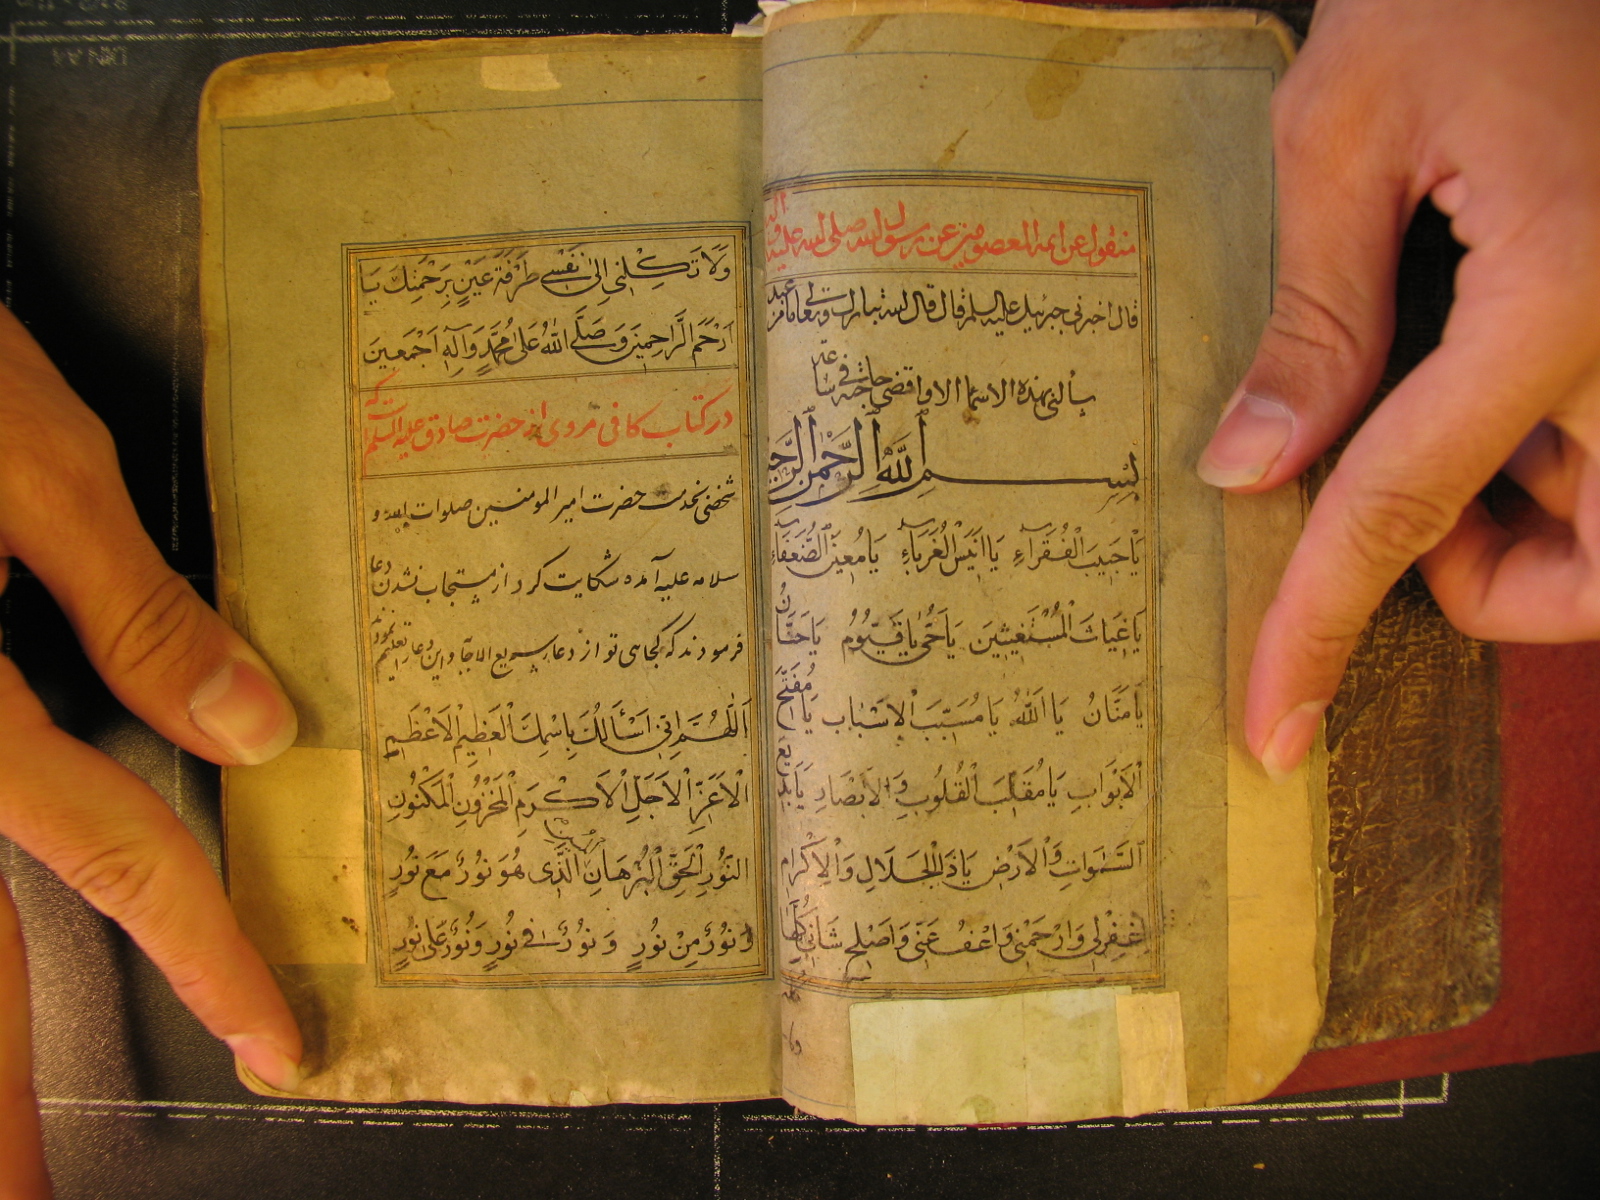 منقول عن ائمة المعصومین عن رسول الله صلی الله علیه
قال اخبرنی جبرئیل علیه السلم قال قال الله تبارک وتعالی ما من عبد
یسألنی بهذه الاسماء الا و اقضی حاجته فی ساعته
بِسْمِ اللّٰهِ الرَّحْمٰنِ الرَّحیم
يَا حَبِيبَ الْفُقَرَآءِ يَا اَنِيسَ الْغُرَبَآءِ يَا مُعِينَ الضُّعَفَآءِ
يَا غِيَاثَ الْمُسْتَغِيثِينَ يَا حَىُّ يَا قَيُّومُ يَا حَنَّانُ
يَا مَنَّانُ يَا اَللّٰهُ يَا مُسَبِّبَ الْاَسْبَابِ يَا مُفَتِّحَ
الْاَبْوَابِ يَا مُقَلِّبَ الْقُلُوبِ وَ الْاَبْصَارِ يَا بَدِيعَ
السَّمٰوَاتِ وَالْاَرْضِ يَا ذَاالْجَلَالِ وَالْاِكْرَامِ
اِغْفِرْلِى وَارْحَمْنِى وَاعْفُ عَنِّى وَاَصْلِحْ شَانِى كُلَّهَا
وَلَا تَكِلْنِى اِلىٰ نَفْسِى طَرْفَةَ عَيْنٍ بِرَحْمَتِكَ يَا
اَرْحَمَ الرَّاحِمِينَ وَصَلَّى اللّٰهُ عَلىٰ مُحَمَّدٍ وَآلِهِ اَجْمَعِينَ
در کتاب کافی مروی از حضرت صادق علیه السلم است که
شخصی بخدمت حضرت امیر المومنین صلوات الله و
سلامه علیه آمده شکایت کرد از مستجاب نشدن دعا
فرمودند که کجاهی تو از دعاء سریع الاجابة و این دعا را تعلیم نمودند
اَللّٰهُمَّ اِنِّى اَسْأَلُكَ بِاسْمِكَ الْعَظِيمِ الْاَعْظَمِ
الْاَعَزِّ الْاَجَلِّ الْاَكْرَمِ الْمَخْزُونِ الْمَكْنُونِ
النُّورِ الْحَقِّ الْبُرْهَانِ الَّذِى هُوَ نُورٌ مَعَ نُورٍ
وَ نُورٌ مِنْ نُورٍ وَ نُورٌ فِى نُورٍ وَ نُورٌ عَلىٰ نُورٍ